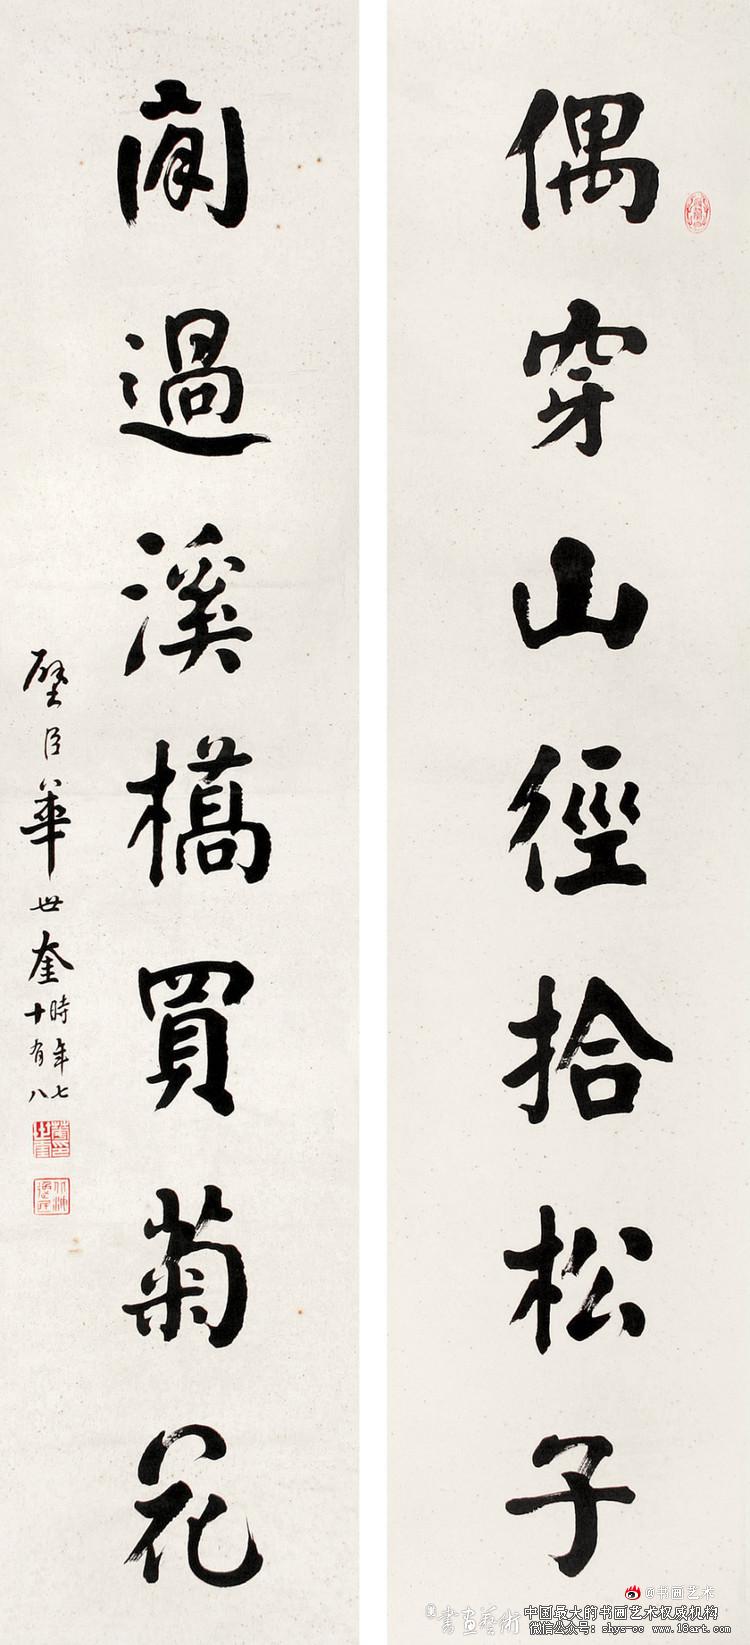 偶穿山徑拾松子
閒過溪橋買菊花
璧臣華世奎時年七
十有八
@书画艺术
書画藝術
中国最大的书画艺术权威机构
微信公众号：shys-cc www.18art.com